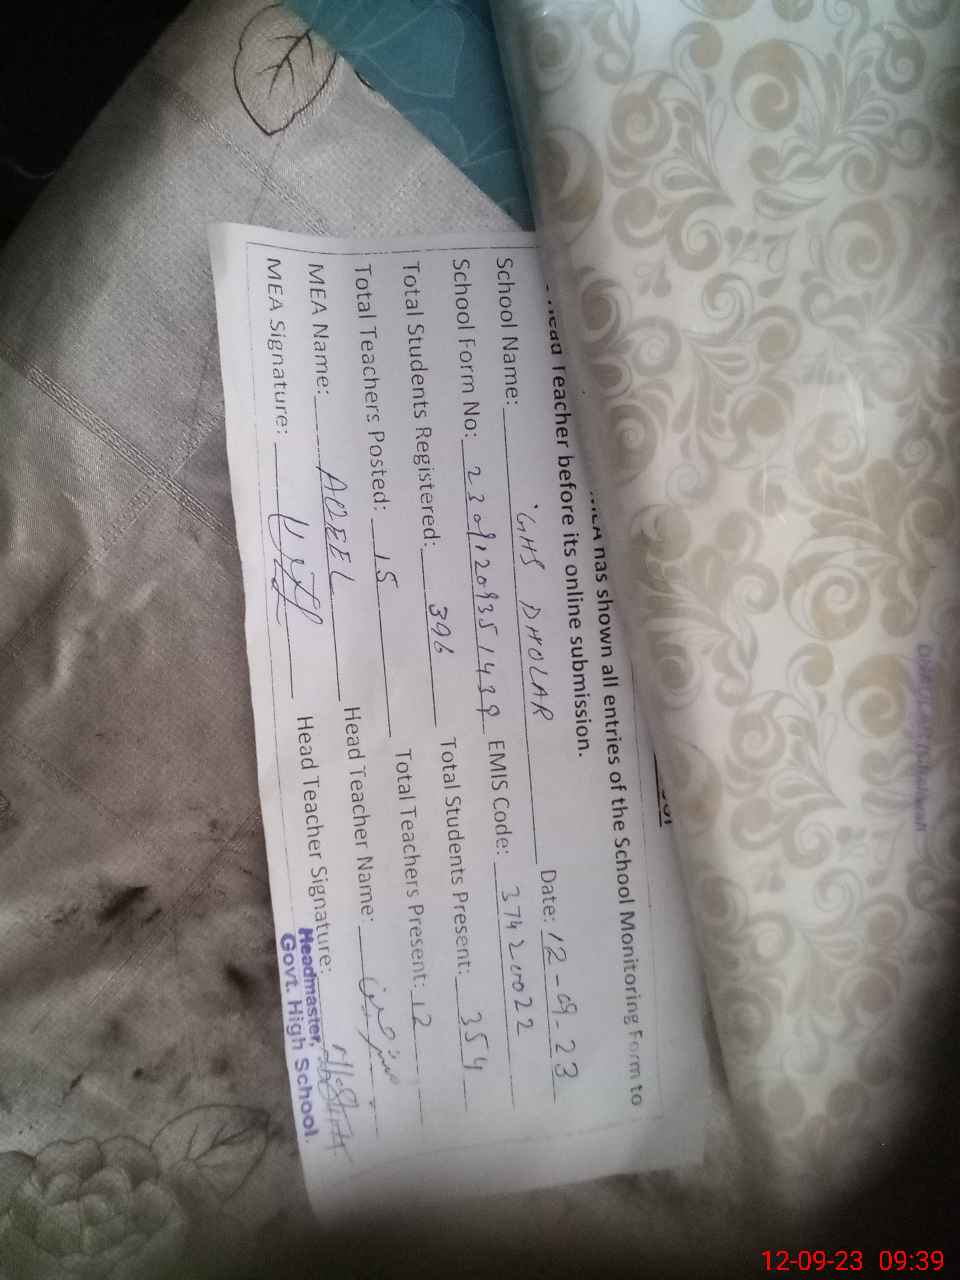 has shown all entries of the School Monitoring Form to
Head Teacher before its online submission.
School Name: GHS DHOLAR Date: 12-09-23
School Form No: EMIS Code:
Total Students Registered: 396 Total Students Present: 354
Total Teachers Posted: 15 Total Teachers Present: 12
MEA Name: ADEEL Head Teacher Name:
MEA Signature: Head Teacher Signature:
Headmaster,
Govt. High School.
12-09-23 09:39